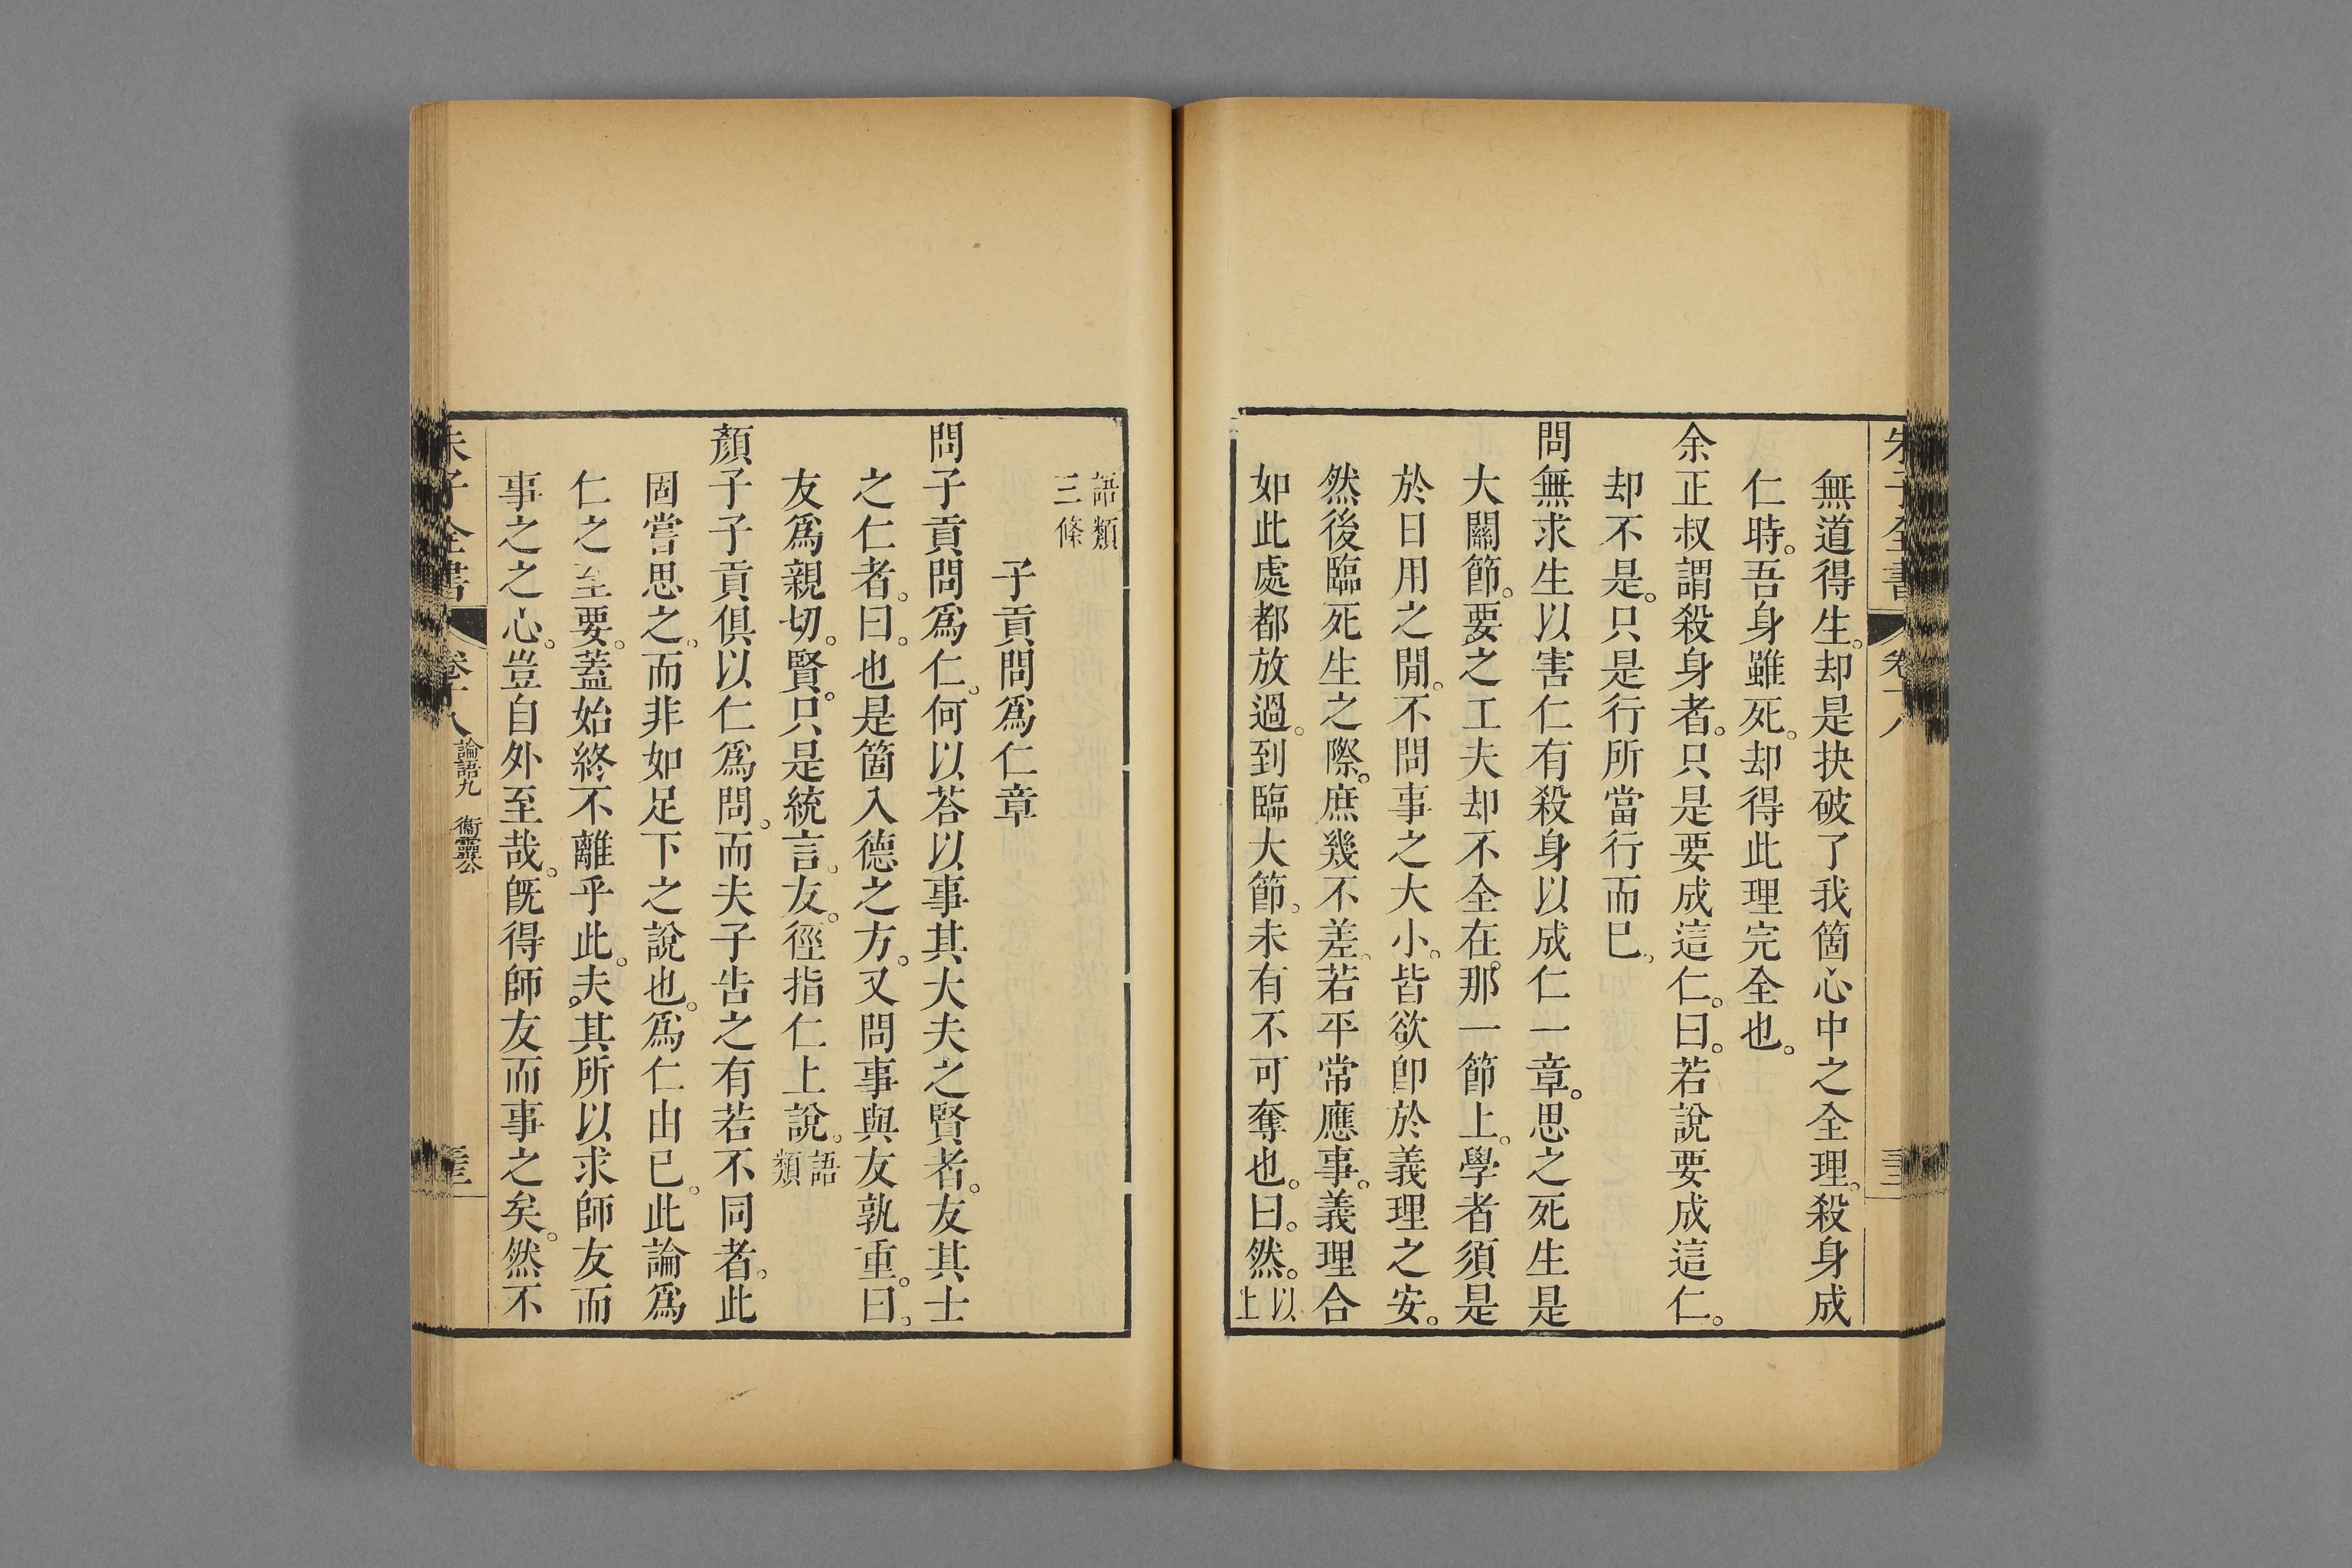 朱子全書 卷十八
無道得生。却是抉破了我箇心中之全理。殺身成
仁時。吾身雖死。却得此理完全也。
余正叔謂殺身者。只是要成這仁。曰。若說要成這仁。
却不是。只是行所當行而已。
問無求生以害仁有殺身以成仁一章。思之死生是
大關節。要之工夫却不全在。那一節上。學者須是
於日用之閒。不問事之大小。皆欲卽於義理之安。
然後臨死生之際。庶幾不差。若平常應事。義理合
如此處都放過。到臨大節。未有不可奪也。曰。然。以上
語類三條
子貢問爲仁章
問子貢問爲仁。何以荅以事其大夫之賢者。友其士
之仁者。曰。也是箇入德之方。又問事與友孰重。曰。
友爲親切。賢。只是統言。友。徑指仁上說。語類
顏子子貢俱以仁爲問。而夫子告之有若不同者。此
固嘗思之。而非如足下之說也。爲仁由已。此論爲
仁之至要。蓋始終不離乎此。夫其所以求師友而
事之之心。豈自外至哉。旣得師友而事之矣。然不
朱子全書 卷十八 論語九 衞靈公